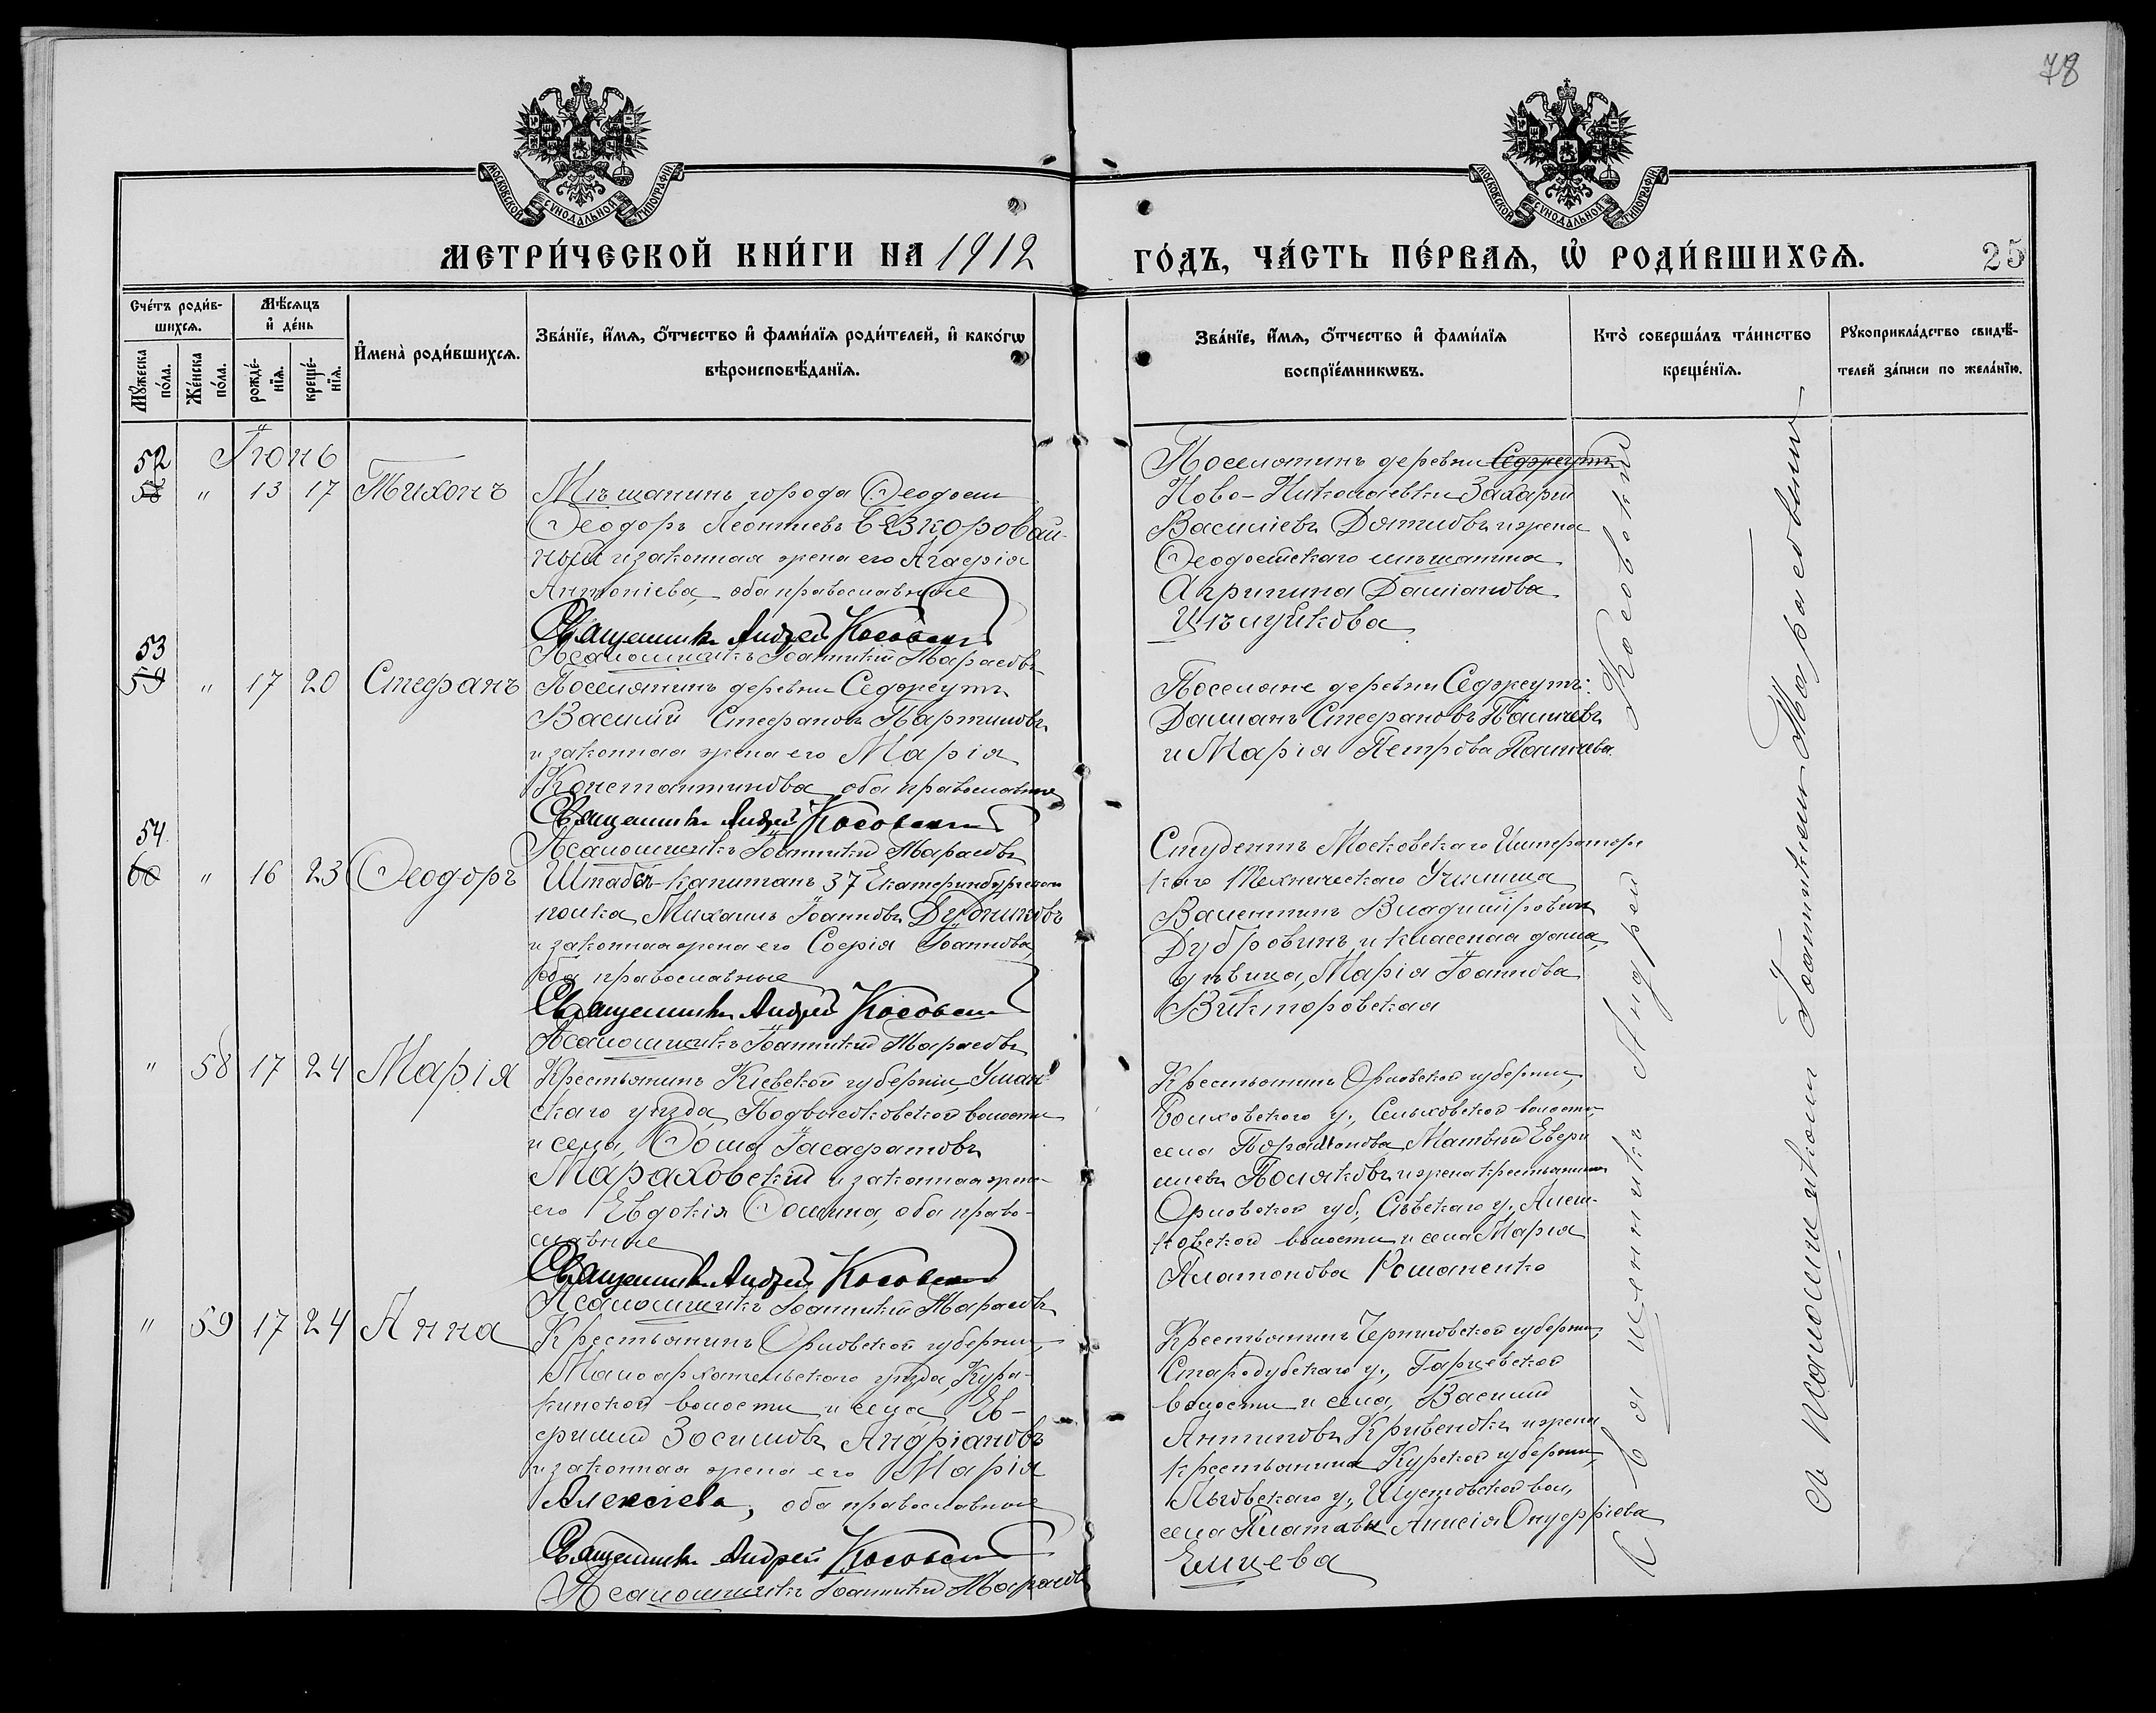 78
МОСКОВСКОЙ СУНОДАЛЬНОЙ ТИПОГРАФІИ.
МОСКОВСКОЙ СУНОДАЛЬНОЙ ТИПОГРАФІИ.
МЕТРИ́ЧЕСКОЙ КНИ́ГИ НА 1912
ГО́ДЪ, ЧА́СТЬ ПЕ́РВАѦ, Ѡ РОДИ́ВШИХСѦ.
25
Сче́тъ роди́в-
шихсѧ.
Мꙋ́жеска
по́ла.
Же́нска
по́ла.
Мѣ́сѧцъ
и҆ де́нь
рожде́-
нїѧ.
креще́-
нїѧ.
И҆мена̀ роди́вшихсѧ.
Зва́нїе, и҆́мѧ, ѻ҆́тчество и҆ фами́лїѧ роди́телей, и҆ како́гѡ
вѣроисповѣ́данїѧ.
Зва́нїе, и҆́мѧ, ѻ҆́тчество и҆ фами́лїѧ
воспрїе́мникѡвъ.
Кто̀ соверша́лъ та́инство
креще́нїѧ.
Рꙋкоприкла́дство свидѣ́-
телей за́писи по жела́нїю.
Іюнь
52
58 " 13 17 Тихонъ
Мѣщанинъ города Ѳеодосіи
Ѳеодоръ Леонтіевъ Безкоровай-
ный и законная жена его Агафія
Антоніева, оба православные
Священникъ Андрей Косовскій
Псаломщикъ Іоанникій Тарасовъ
Поселянинъ деревни Седжеутъ
Ново-Николаевки Захарій
Василіевъ и жена
Ѳеодосійскаго мѣщанина
Агрипина Даміанова
53
59 " 17 20 Стефанъ
Поселянинъ деревни Седжеутъ
Василій Стефановъ Партиновъ
и законная жена его Марія
Константинова, оба православные
Священникъ Андрей Косовскій
Псаломщикъ Іоанникій Тарасовъ
Поселяне деревни Седжеутъ:
Даміанъ Стефановъ
и Марія Петрова
54
60 " 16 23 Ѳеодоръ
Штабсъ-капитанъ 37 Екатеринбургскаго
полка Михаилъ Іоанновъ Дудниковъ
и законная жена его Софія Іоаннова,
оба православные
Священникъ Андрей Косовскій
Псаломщикъ Іоанникій Тарасовъ
Студентъ Московскаго Императорс
каго Техническаго Училища
Валентинъ Владиміровичъ
Дубровинъ и классная дама,
дѣвица, Марія Іоаннова
Викторовская
" 58 17 24 Марія
Крестьянинъ Кіевской губерніи, Уман-
скаго уѣзда, Подвысоковской волости
и села, Ѳома Іасафатовъ
Мараховскій и законная жена
его Евдокія Ѳомина, оба право-
славные
Священникъ Андрей Косовскій
Псаломщикъ Іоанникій Тарасовъ
Крестьянинъ Орловской губерніи,
Болховского у., волости,
села Матвѣй
Поляковъ и жена крестьянина
Орловской губ., Сѣвскаго у.,
волости и села Марія
Платонова Романенко
" 59 17 24 Анна
Крестьянинъ Орловской губерніи,
Малоархангельскаго уѣзда, Кура-
кинской волости и села, Ев-
фимій Зосимовъ Андріановъ
и законная жена его Марія
Алексіева, оба православные
Священникъ Андрей Косовскій
Псаломщикъ Іоанникій Тарасовъ
Крестьянинъ Черниговской губерніи,
Стародубскаго у., Гарцевской
волости и села, Василій
Антиповъ и жена
крестьянина Курской губерніи,
Льговскаго у., вол.,
села Анисія Онуфріева
Елицева
Священникъ Андрей Косовскій
съ псаломщикомъ Іоанникіемъ Тарасовымъ